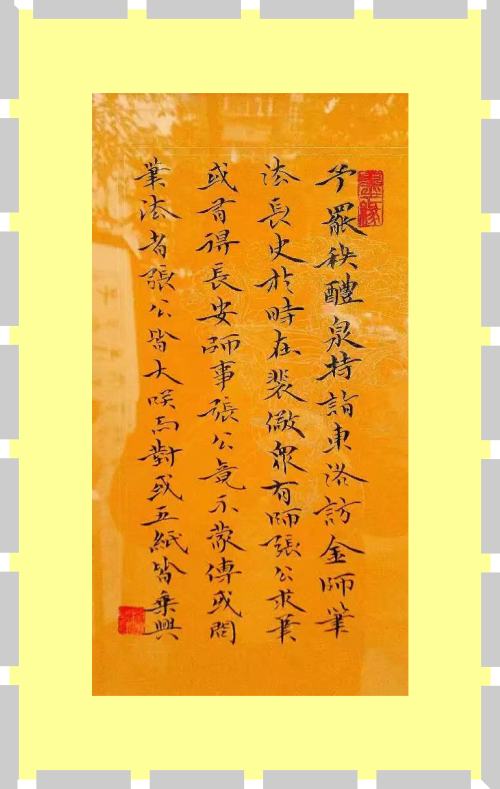 予罷秩醴泉特詣東洛訪金師筆
法長史於時在裴儆眾有師張公求筆
或有得長安師事張公竟不蒙傳或問
筆法者張公皆大咲而對或五紙皆乘興